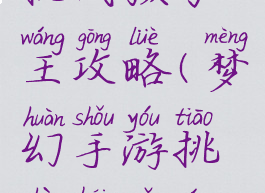 wáng gōng lüè mèng
王攻略(梦
huàn shǒu yóu tiāo
幻手游挑